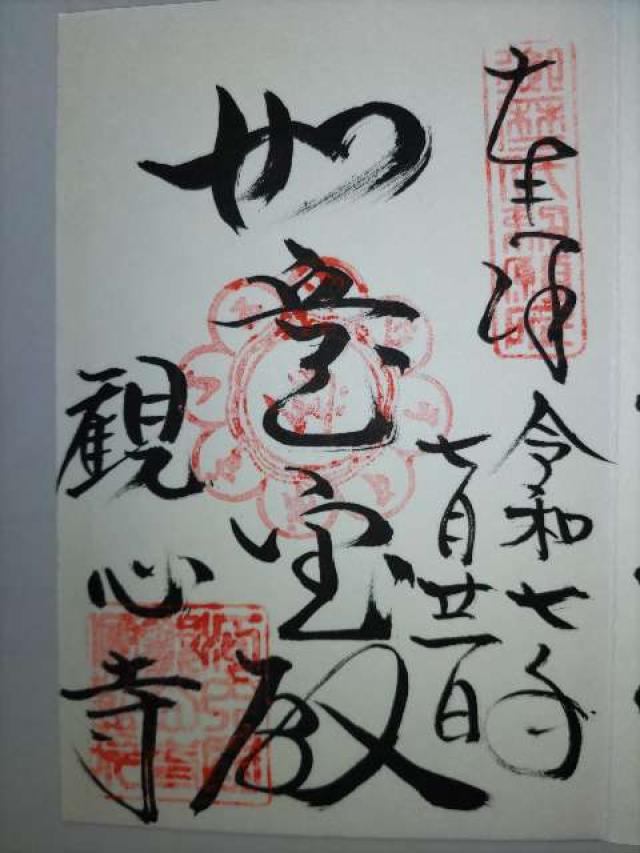 奉拝
令和七年
七月廿一日
如意宝殿
観心寺